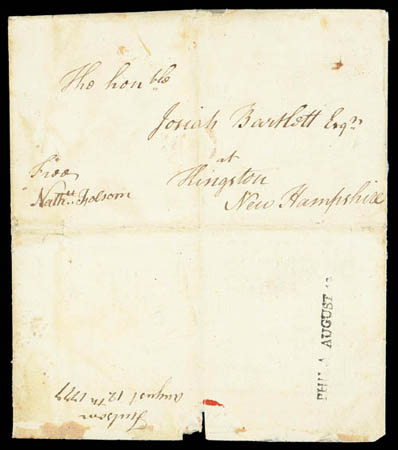 The hon:ble
Josiah Bartlett Esqr
at
Kingston
New Hampshire
Free
Nathll: Folsom
PHILA AUGUST 12
Fulsom
August 12th 1777